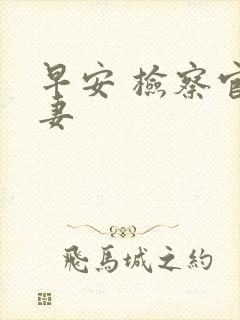 早安 檢察官
妻
飛馬城之約